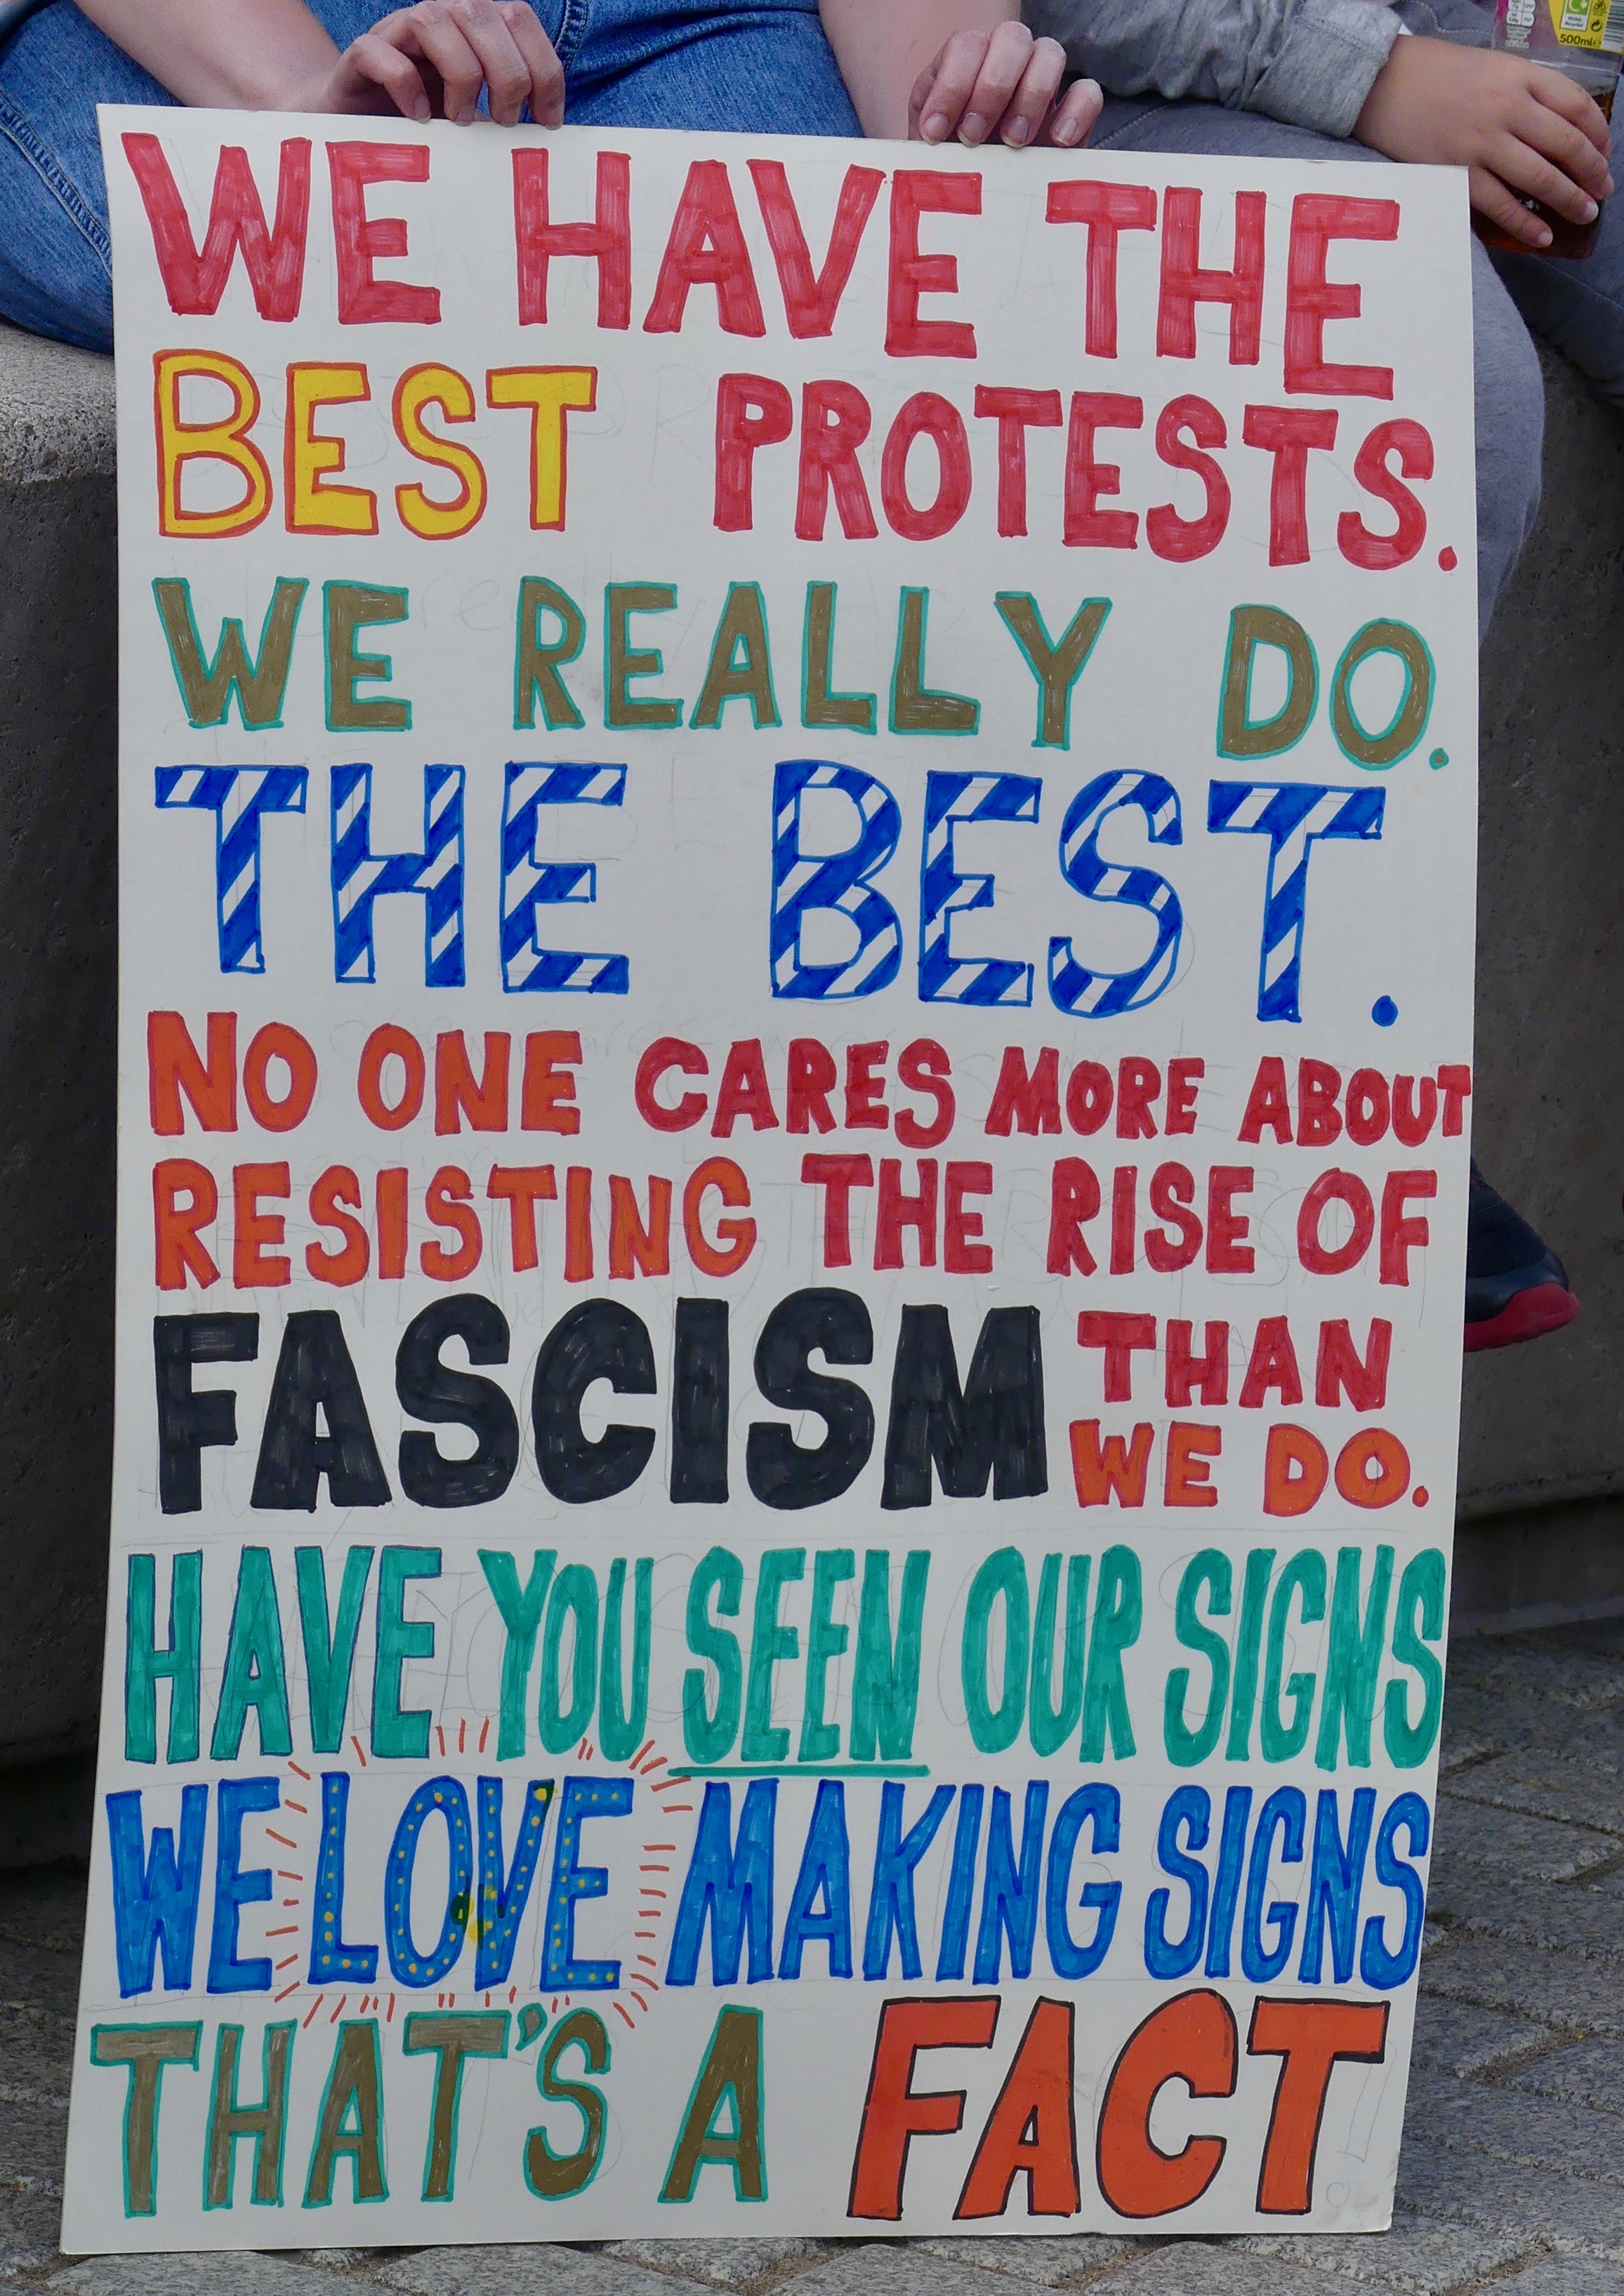 500ml
WE HAVE THE
BEST PROTESTS.
WE REALLY DO.
THE BEST.
NO ONE CARES MORE ABOUT
RESISTING THE RISE OF
FASCISM THAN
WE DO.
HAVE YOU SEEN OUR SIGNS
WE LOVE MAKING SIGNS
THAT'S A FACT